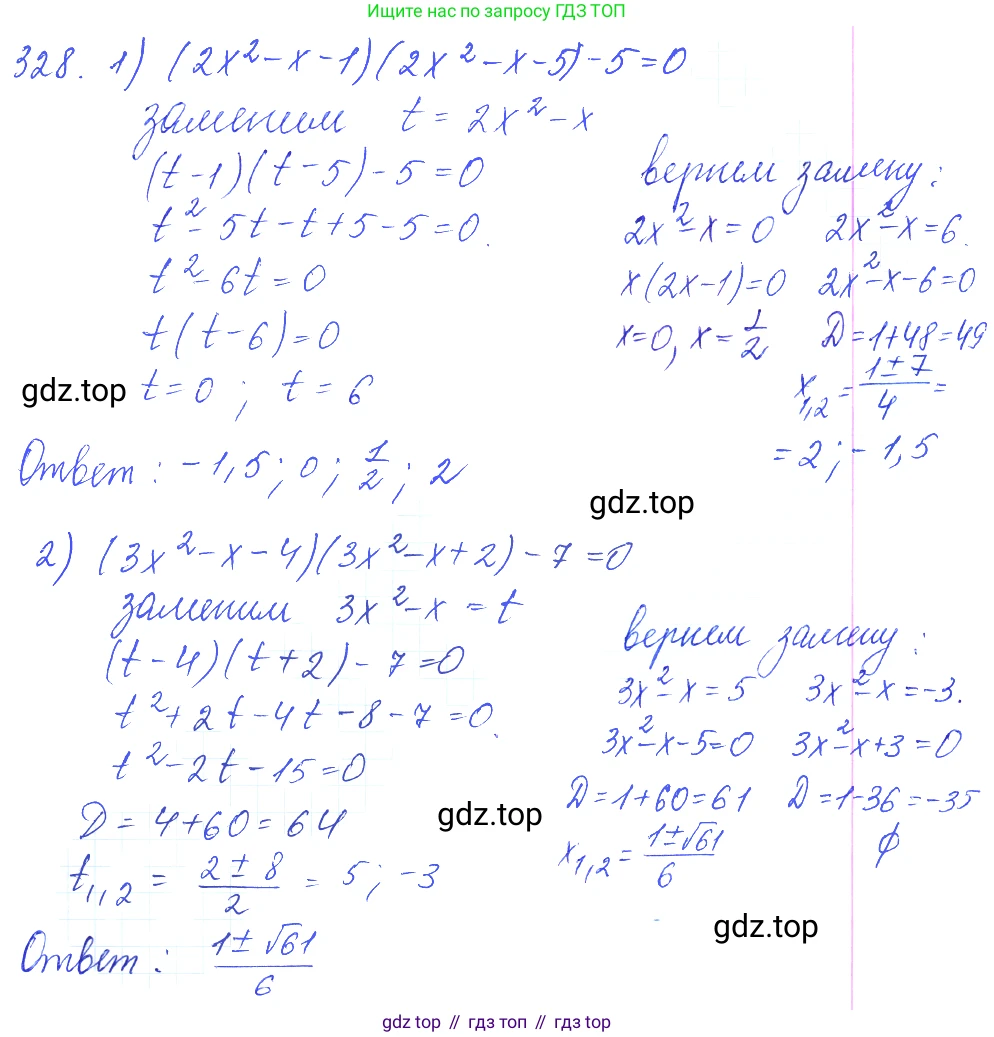 Ищите нас по запросу ГДЗ ТОП
328. 1) (2x² - x - 1)(2x² - x - 5) - 5 = 0
заменим t = 2x² - x
(t - 1)(t - 5) - 5 = 0
t² - 5t - t + 5 - 5 = 0.
t² - 6t = 0
t(t - 6) = 0
gdz.top t = 0 ; t = 6
вернем замену:
2x² - x = 0 2x² - x = 6.
x(2x - 1) = 0 2x² - x - 6 = 0
x = 0, x = 1/2 D = 1 + 48 = 49
x₁,₂ = (1 ± 7)/4 =
= 2 ; - 1,5
Ответ : - 1,5 ; 0 ; 1/2 ; 2
gdz.top
2) (3x² - x - 4)(3x² - x + 2) - 7 = 0
заменим 3x² - x = t
(t - 4)(t + 2) - 7 = 0
t² + 2t - 4t - 8 - 7 = 0.
t² - 2t - 15 = 0
D = 4 + 60 = 64
t₁,₂ = (2 ± 8)/2 = 5 ; -3
вернем замену :
3x² - x = 5 3x² - x = -3.
3x² - x - 5 = 0 3x² - x + 3 = 0
D = 1 + 60 = 61 D = 1 - 36 = -35
x₁,₂ = (1 ± √61)/6 ϕ
gdz.top
gdz.top
Ответ : (1 ± √61)/6
gdz top // гдз топ // gdz top